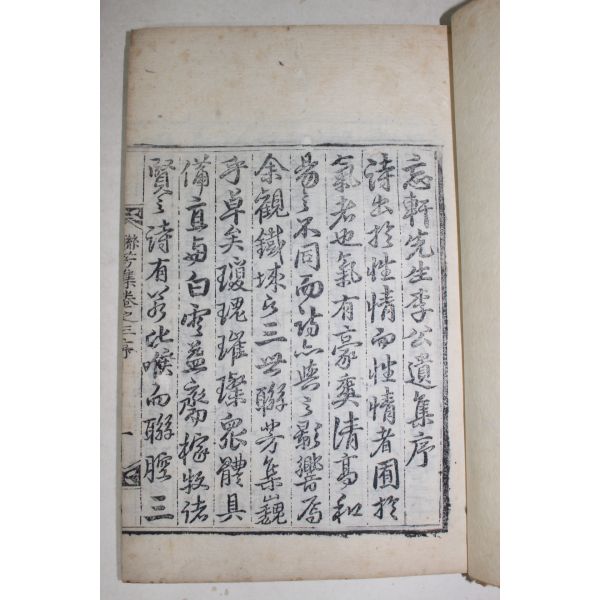 忘軒先生李公遺集序
詩出於性情而性情者囿於
氣者也氣有豪爽清高和
易之不同而詩亦與之影響焉
余觀鐵城之三世聯芳集巍
乎卓矣瓊瑰璀璨眾體具
備直與白雲益齋稼牧諸
賢之詩有若比喉而聯腔三
聯芳集卷之三序
一